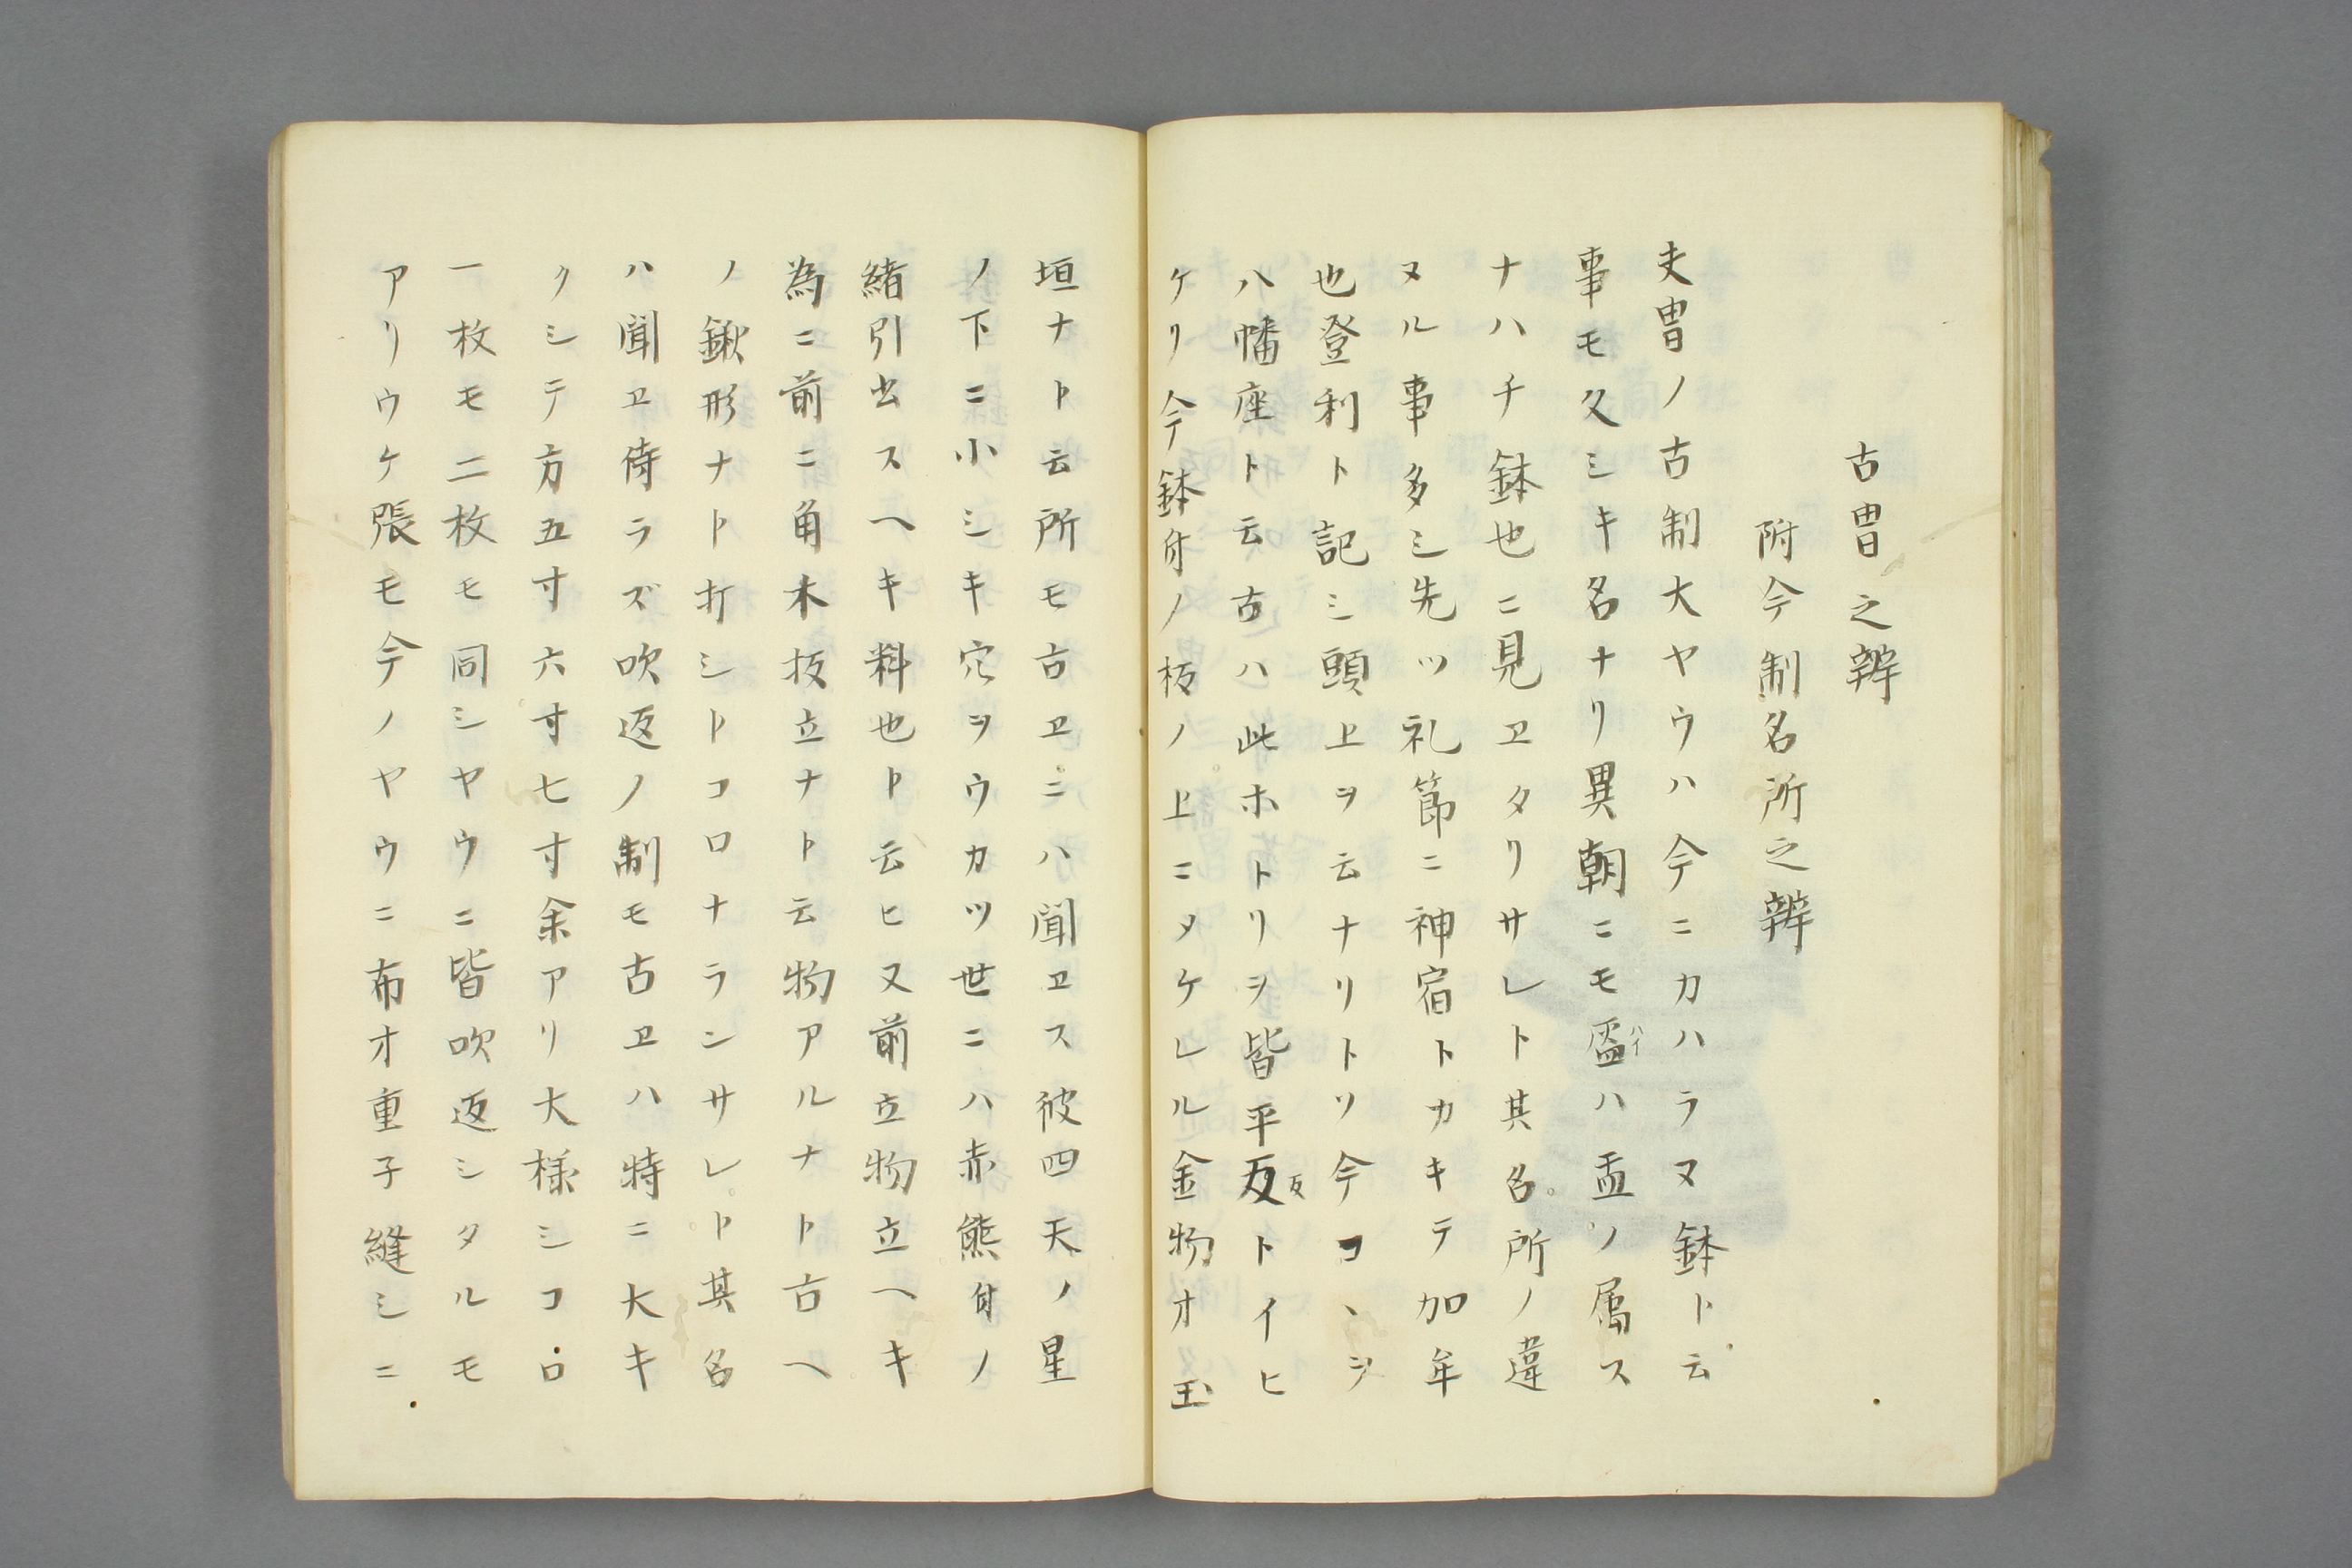 古冑之辨
附今制名所之辨
夫冑ノ古制大ヤウハ今ニカハラヌ鉢ト云
事モ久シキ名ナリ異朝ニモ盔ハイハ盂ノ属ス
ナハチ鉢也ニ見ヱタリサレト其名所ノ違
ヌル事多シ先ツ礼節ニ神宿トカキテ加牟
也登利ト記シ頭上ヲ云ナリトソ今コヽヲ
八幡座ト云古ハ此ホトリヲ皆平反トイヒ
ケリ今鉢付ノ板ノ上ニメケレル金物オ玉
垣ナト云所モ古ヱニハ聞ヱス彼四天ノ星
ノ下ニ小シキ穴ヲウカツ世ニハ赤熊付ノ
緒引出スヘキ料也ト云ヒ又前立物立ヘキ
為ニ前ニ角木抜立ナト云物アルナト古ヘ
ノ鍬形ナト打シトコロナランサレト其名
ハ聞ヱ侍ラズ吹返ノ制モ古ヱハ特ニ大キ
クシテ方五寸六寸七寸余アリ大様シコロ
一枚モ二枚モ同シヤウニ皆吹返シタルモ
アリウケ張モ今ノヤウニ布オ重子縫シニ